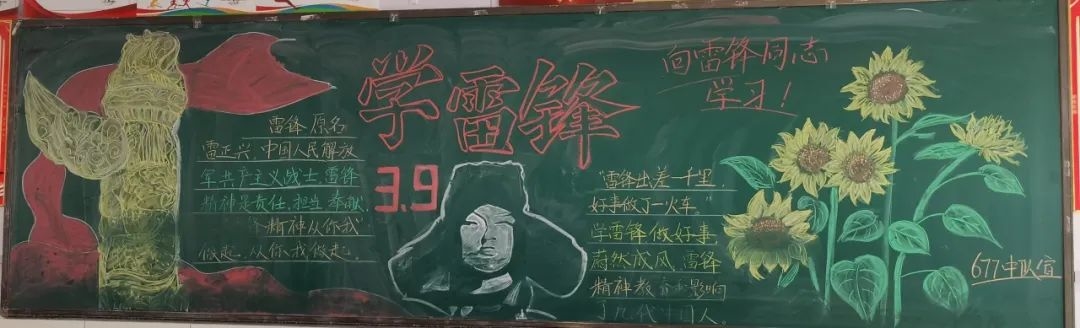 学雷锋
3.9
向雷锋同志
学习！
雷锋 原名
雷正兴，中国人民解放
军共产主义战士雷锋
精神是责任，担当 奉献，
精神从你我
做起，从你我做起。
“雷锋出差一千里，
好事做了一火车。”
学雷锋做好事
蔚然成风，雷锋
精神教育和影响
了几代中国人。
677中队宣